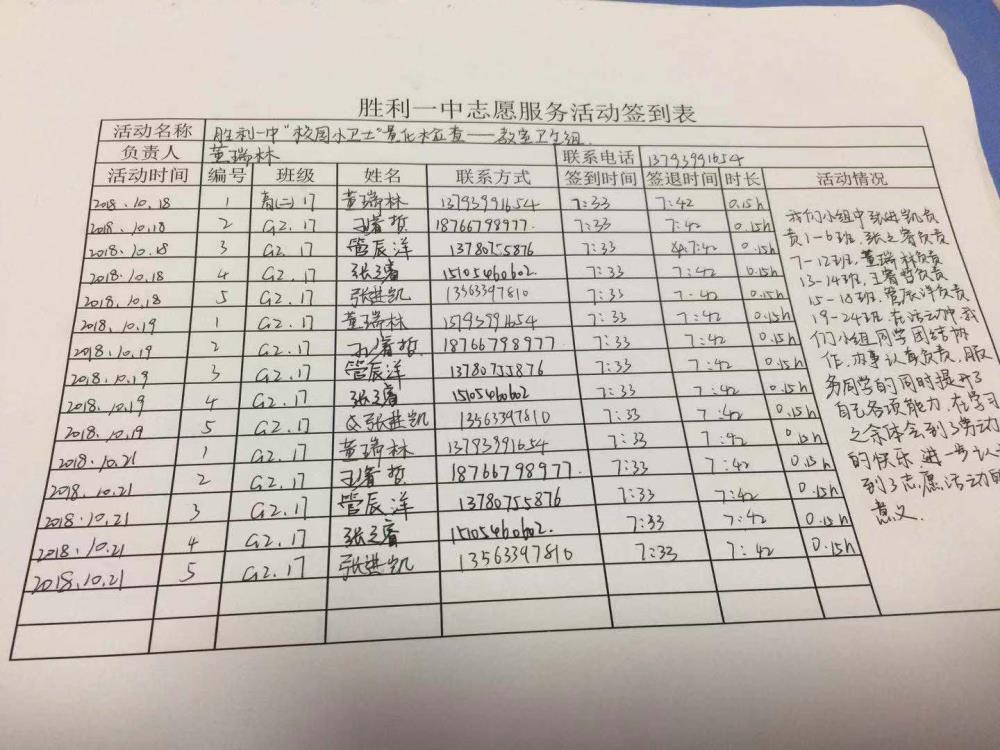 胜利一中志愿服务活动签到表
活动名称 胜利一中"校园小卫士"量化检查——教室卫生组
负责人 董瑞林 联系电话 13793991654
活动时间 编号 班级 姓名 联系方式 签到时间 签退时间 时长 活动情况
2018.10.18 1 高(二)17 董瑞林 13793991654 7:33 7:42 0.15h
2018.10.18 2 G2.17 王睿哲 18766798977 7:33 7:42 0.15h
2018.10.18 3 G2.17 管辰洋 13780755876 7:33 7:42 0.15h
2018.10.18 4 G2.17 张立睿 15105460602 7:33 7:42 0.15h
2018.10.18 5 G2.17 张进凯 13563397810 7:33 7:42 0.15h
2018.10.19 1 G2.17 董瑞林 13793991654 7:33 7:42 0.15h
2018.10.19 2 G2.17 王睿哲 18766798977 7:33 7:42 0.15h
2018.10.19 3 G2.17 管辰洋 13780755876 7:33 7:42 0.15h
2018.10.19 4 G2.17 张立睿 15105460602 7:33 7:42 0.15h
2018.10.19 5 G2.17 张进凯 13563397810 7:33 7:42 0.15h
2018.10.21 1 G2.17 董瑞林 13793991654 7:33 7:42 0.15h
2018.10.21 2 G2.17 王睿哲 18766798977 7:33 7:42 0.15h
2018.10.21 3 G2.17 管辰洋 13780755876 7:33 7:42 0.15h
2018.10.21 4 G2.17 张立睿 15105460602 7:33 7:42 0.15h
2018.10.21 5 G2.17 张进凯 13563397810 7:33 7:42 0.15h
我们小组中张进凯负
责1-6班,张立睿负责
7-12班,董瑞林负责
13-14班,王睿哲负责
15-18班,管辰洋负责
19-24班.在活动中,我
们小组同学团结协
作,办事认真负责,服
务同学的同时提升了
自己各项能力,在学习
之余体会到了劳动
的快乐,进一步认
到了志愿活动的
意义.